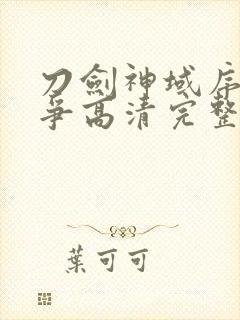 刀劍神域序
爭高清完整
葉可可